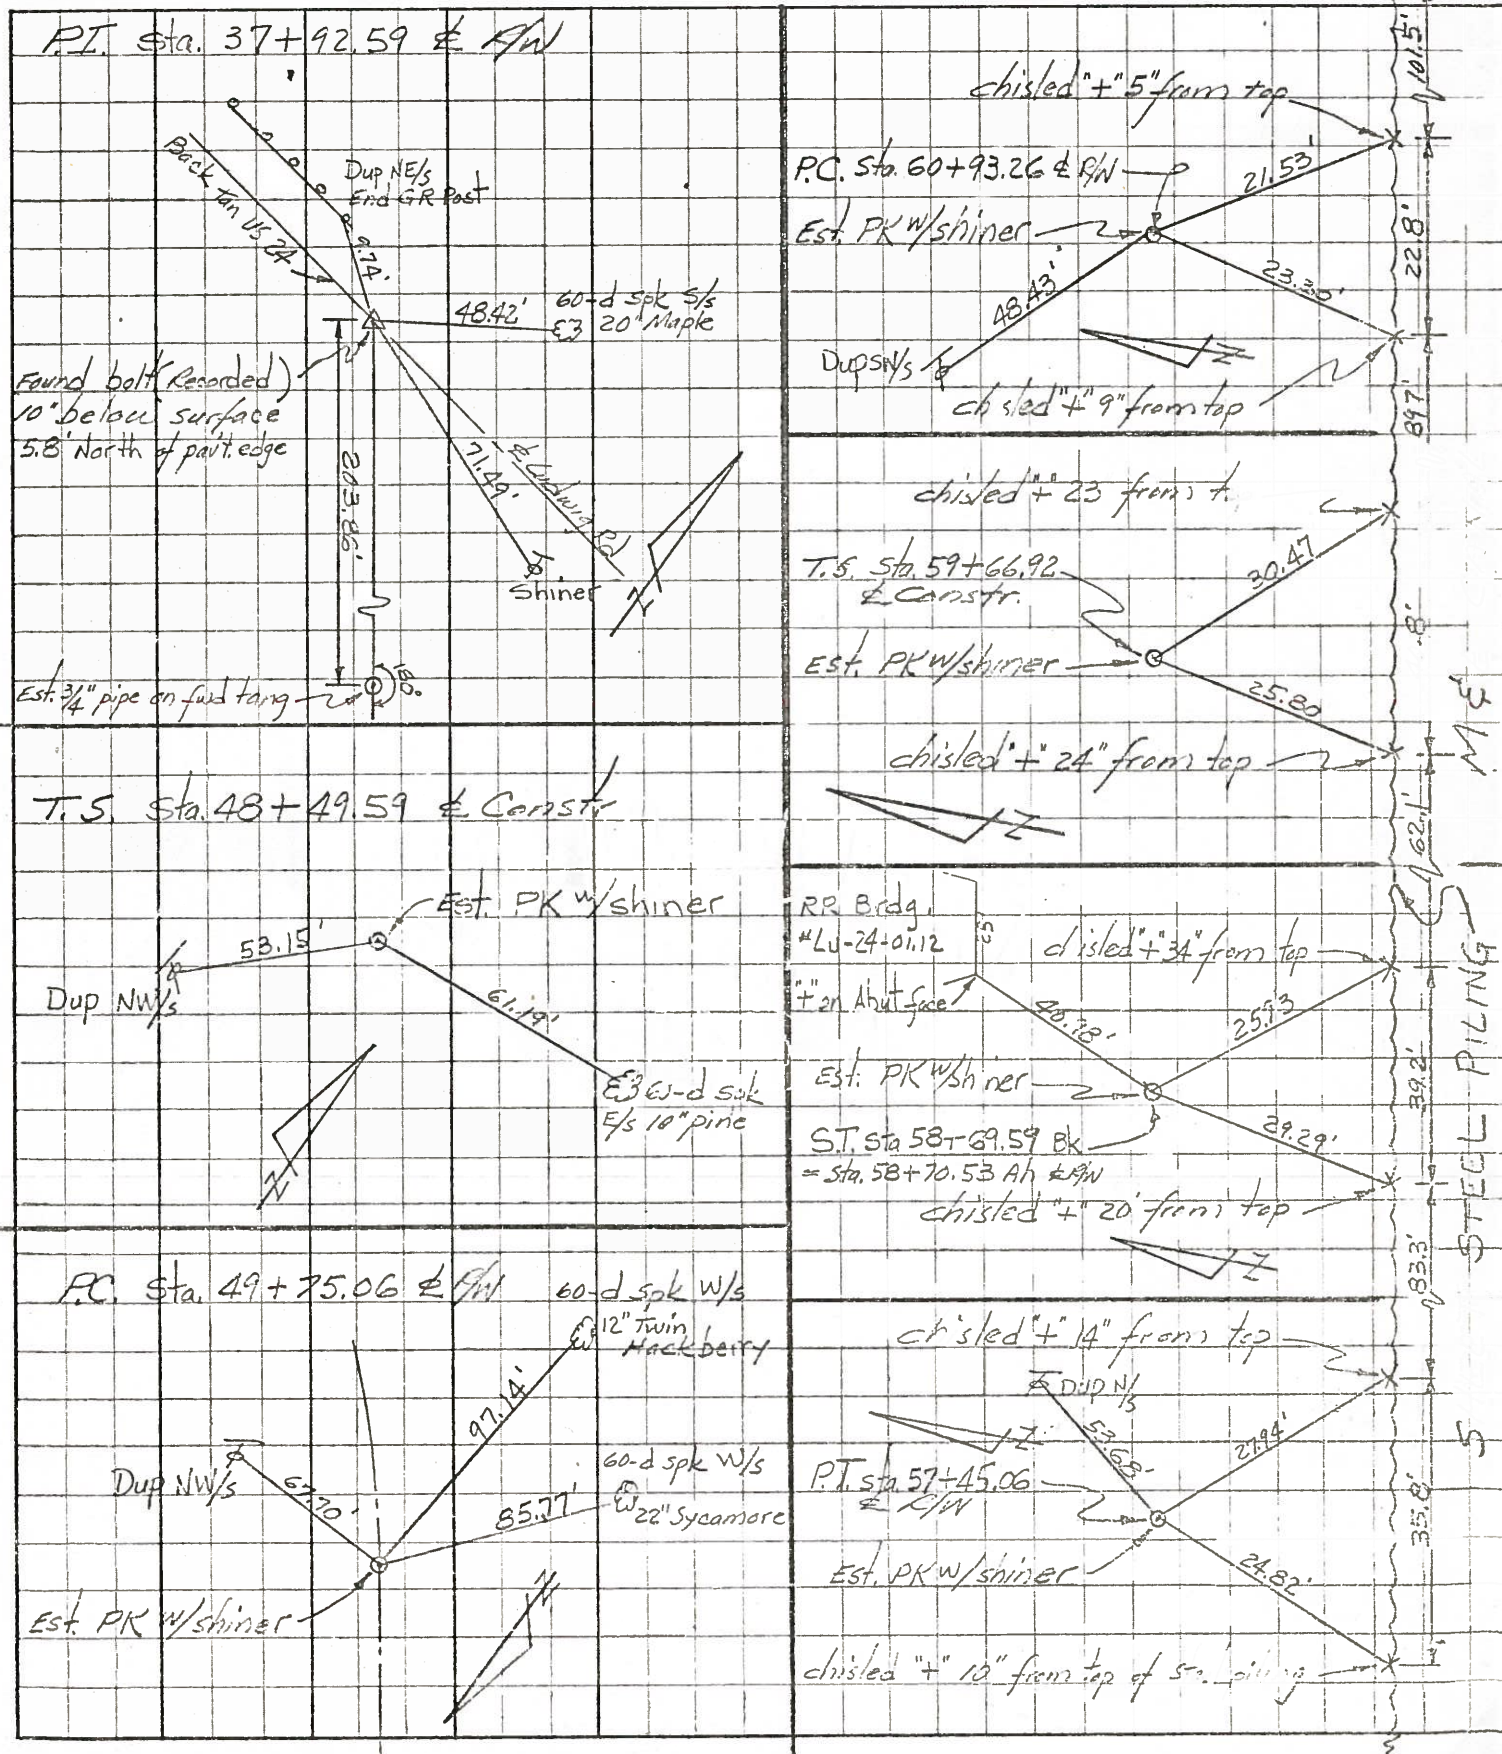 P.I. Sta. 37+92.59 ℄ R/W
Back Tan US 24
Dup NE/s
End GR Post
9.74'
48.42'
60-d spk S/s
20" Maple
Found bolt (Recorded)
10" below surface
5.8' North of pav't. edge
203.86'
71.49'
℄ Ludwig Rd
Shiner
N
Est. 3/4" pipe on fwd tang
180°
T.S. Sta. 48+49.59 ℄ Constr.
Est. PK w/shiner
53.15'
Dup NW/s
61.19'
60-d spk
E/s 10" pine
N
P.C. Sta. 49+75.06 ℄ R/W
60-d spk W/s
12" Twin
Hackberry
97.14'
Dup NW/s
67.70'
60-d spk W/s
22" Sycamore
85.77'
Est. PK w/shiner
N
chisled "+" 5" from top
101.5'
P.C. Sta. 60+93.26 ℄ R/W
21.53'
Est. PK w/shiner
22.8'
48.43'
23.30'
N
Dup SW/s
chisled "+" 9" from top
89.7'
chisled "+" 23 from t.
T.S. Sta. 59+66.92
℄ Constr.
30.47
.8'
Est. PK w/shiner
25.80
chisled "+" 24" from top
N
62.1'
RR Brdg.
#LU-24-01.12
25'
chisled "+" 34" from top
"+" on Abut face
40.78'
25.73
Est. PK w/shiner
39.2'
S.T. Sta 58+69.59 Bk
= Sta. 58+70.53 Ah ℄ R/W
29.29'
chisled "+" 20" from top
N
83.3'
STEEL PILING
chisled "+" 14" from top
Dup N/s
N
53.68'
27.94'
P.T. Sta. 57+45.06
℄ R/W
35.8'
Est. PK w/shiner
24.82'
chisled "+" 10" from top of piling